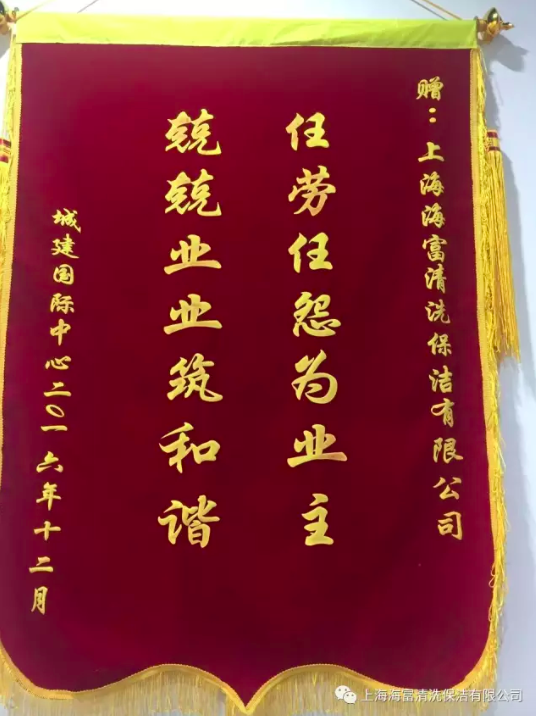 赠：上海海富清洗保洁有限公司
任劳任怨为业主
兢兢业业筑和谐
城建国际中心二〇一六年十二月
上海海富清洗保洁有限公司